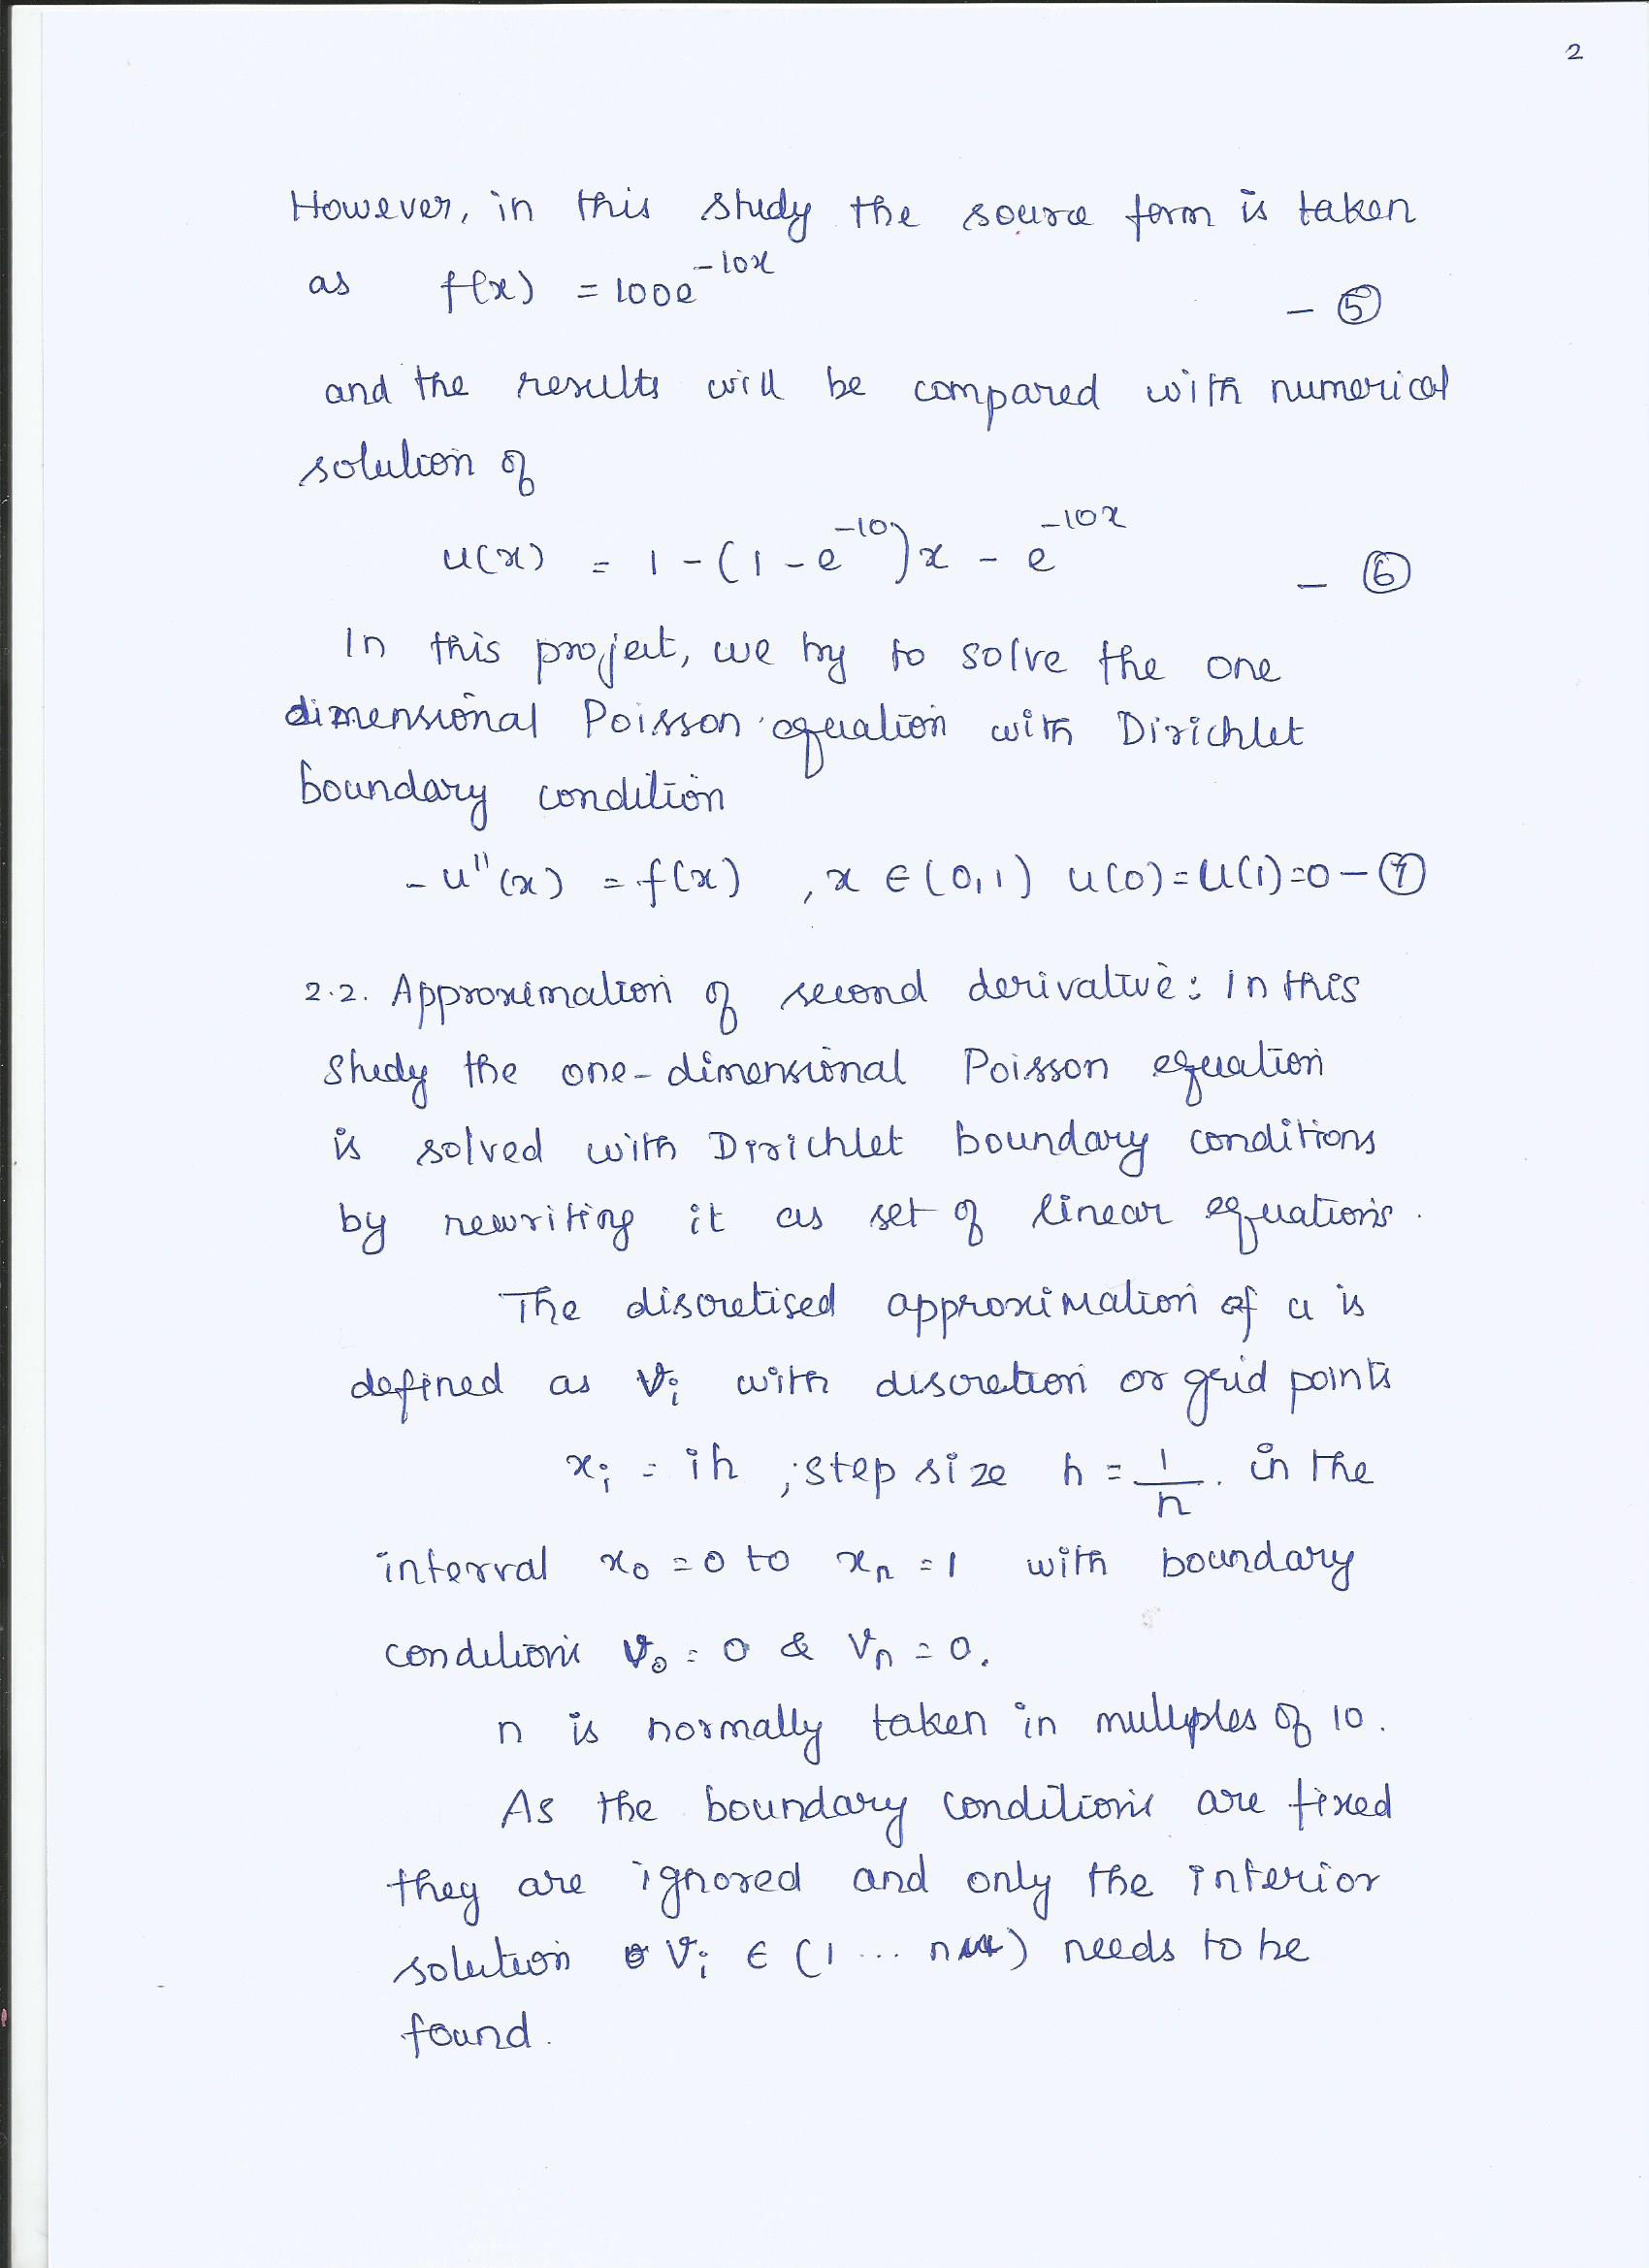 2
However, in this study the source form is taken
as f(x) = 100e^{-10x} - ⑤
and the results will be compared with numerical
solution of
u(x) = 1 - (1 - e^{-10})x - e^{-10x} - ⑥
In this project, we try to solve the one
dimensional Poisson equation with Dirichlet
boundary condition
- u''(x) = f(x) , x ∈ (0,1) u(0) = u(1) = 0 - ⑦
2.2. Approximation of second derivative: In this
study the one-dimensional Poisson equation
is solved with Dirichlet boundary conditions
by rewriting it as set of linear equations.
The discretised approximation of u is
defined as v_i with discretion or grid points
x_i = ih ; step size h = 1/n. in the
interval x_0 = 0 to x_n = 1 with boundary
conditions v_0 = 0 & v_n = 0.
n is normally taken in multiples of 10.
As the boundary conditions are fixed
they are ignored and only the interior
solution v_i ∈ (1 ... n) needs to be
found.